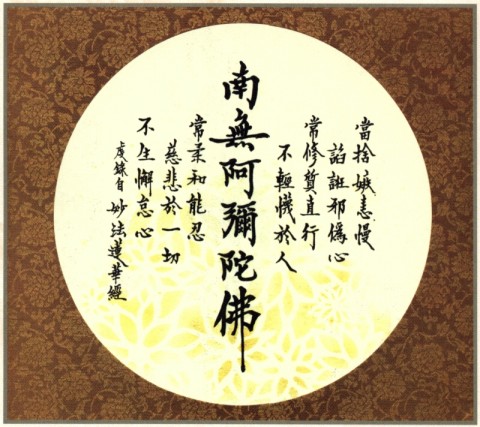 當捨嫉恚慢
諂誑邪偽心
常修質直行
不輕懱於人
南無阿彌陀佛
常柔和能忍
慈悲於一切
不生懈怠心
虔錄自 妙法蓮華經